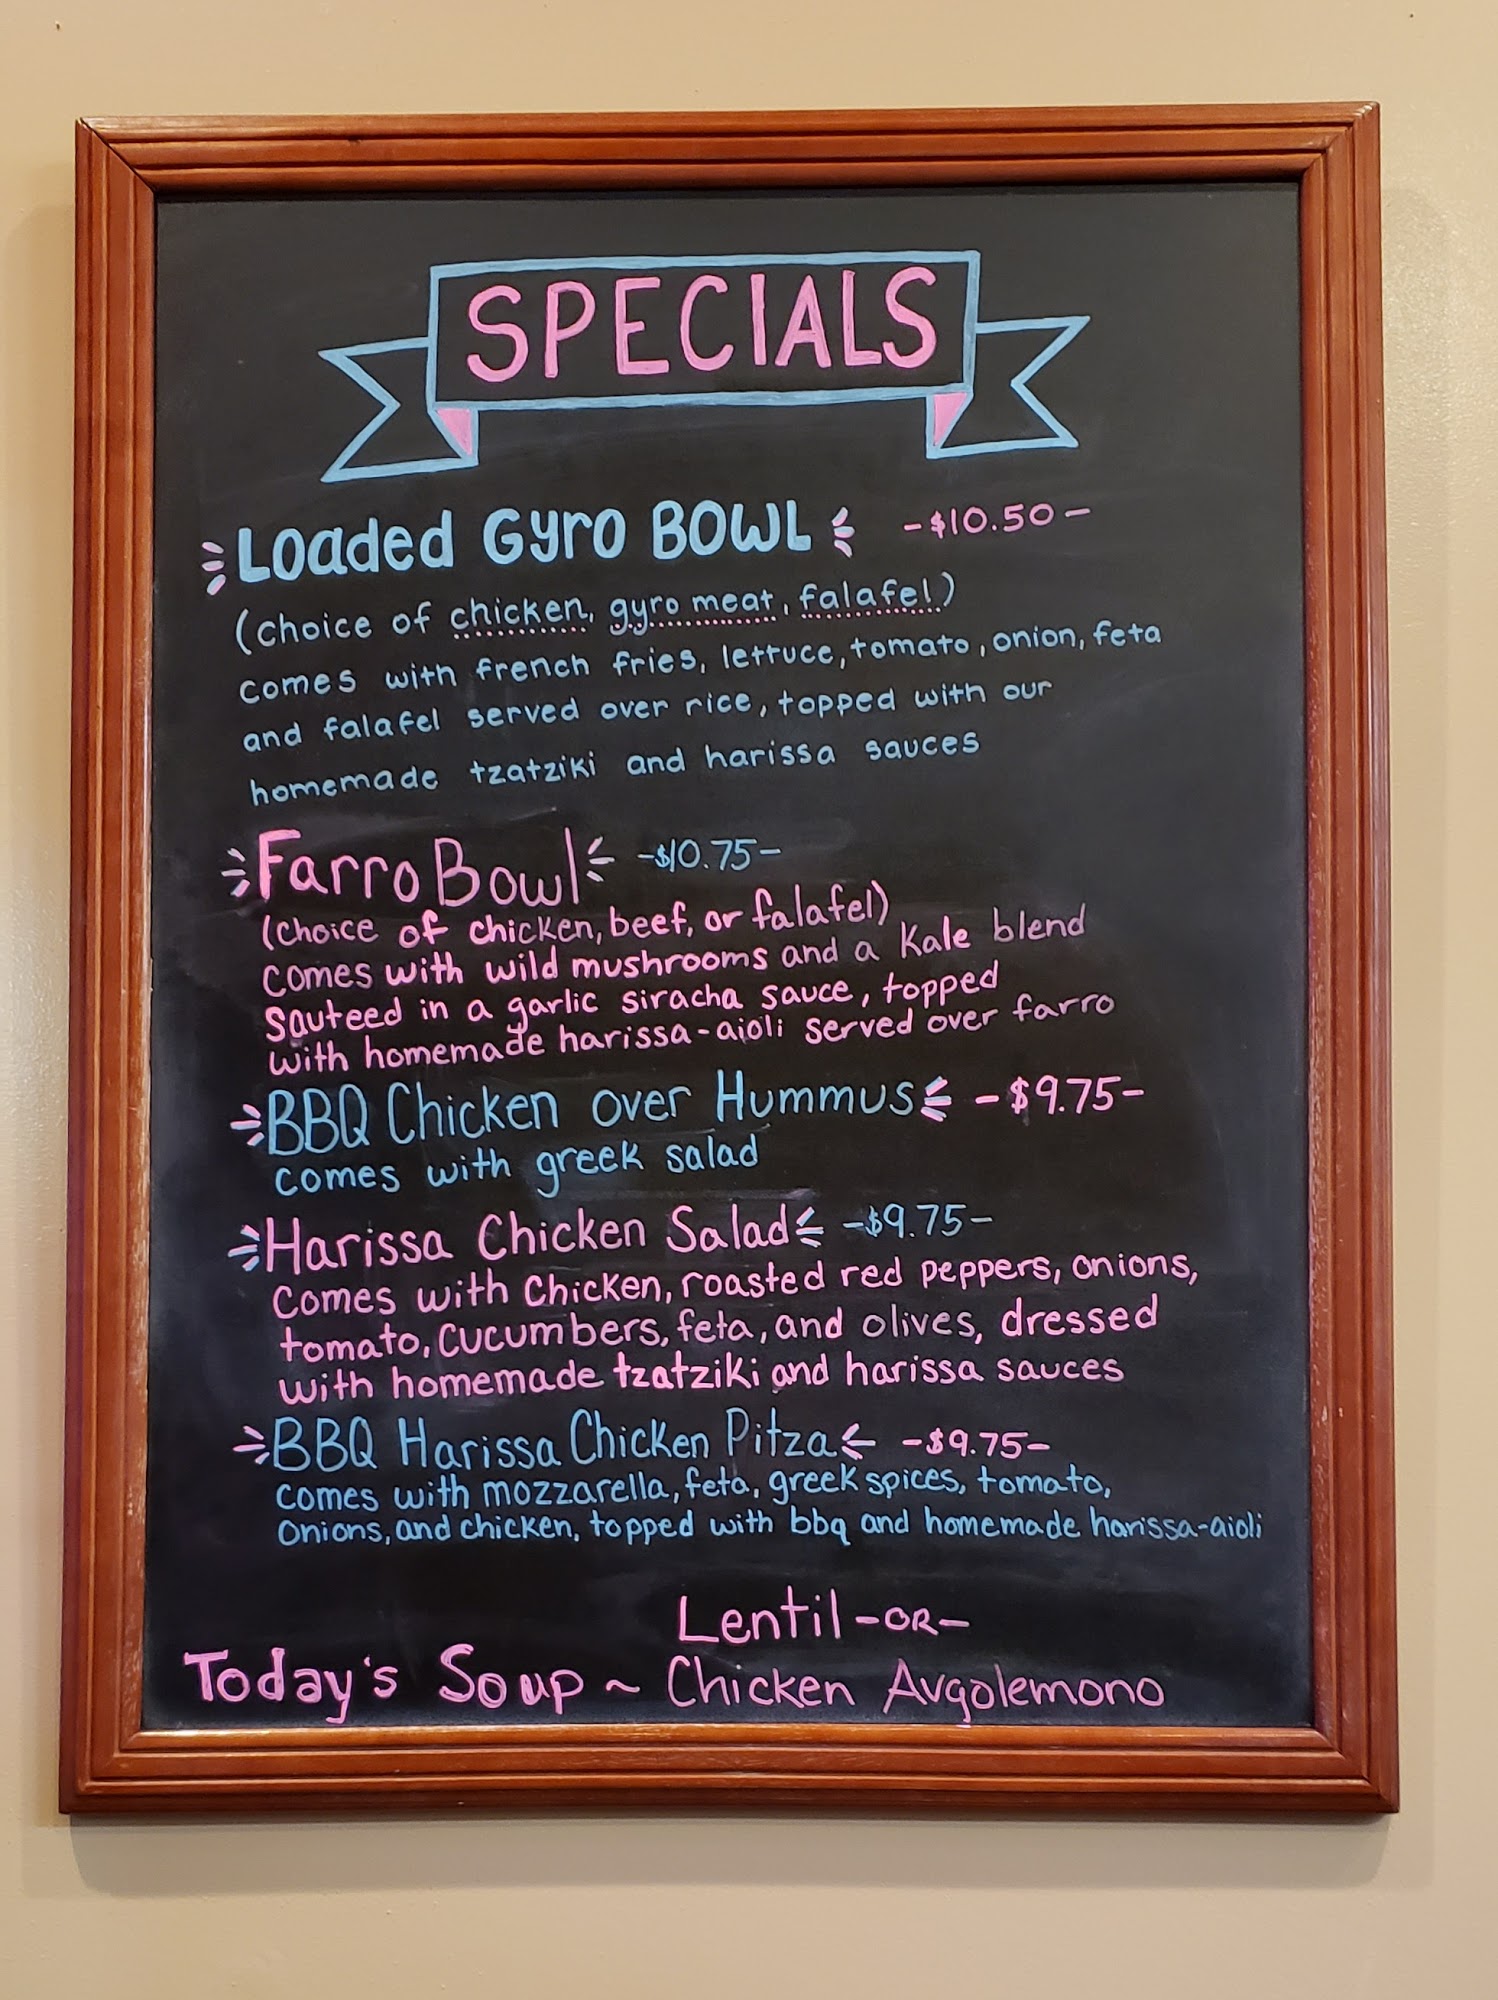 SPECIALS
Loaded Gyro BOWL -$10.50-
(choice of chicken, gyro meat, falafel)
comes with french fries, lettuce, tomato, onion, feta
and falafel served over rice, topped with our
homemade tzatziki and harissa sauces
Farro Bowl -$10.75-
(choice of chicken, beef, or falafel)
comes with wild mushrooms and a Kale blend
sauteed in a garlic siracha sauce, topped
with homemade harissa-aioli served over farro
BBQ Chicken over Hummus -$9.75-
comes with greek salad
Harissa Chicken Salad -$9.75-
comes with chicken, roasted red peppers, onions,
tomato, cucumbers, feta, and olives, dressed
with homemade tzatziki and harissa sauces
BBQ Harissa Chicken Pitza -$9.75-
comes with mozzarella, feta, greek spices, tomato,
onions, and chicken, topped with bbq and homemade harissa-aioli
Lentil -OR-
Today's Soup ~ Chicken Avgolemono